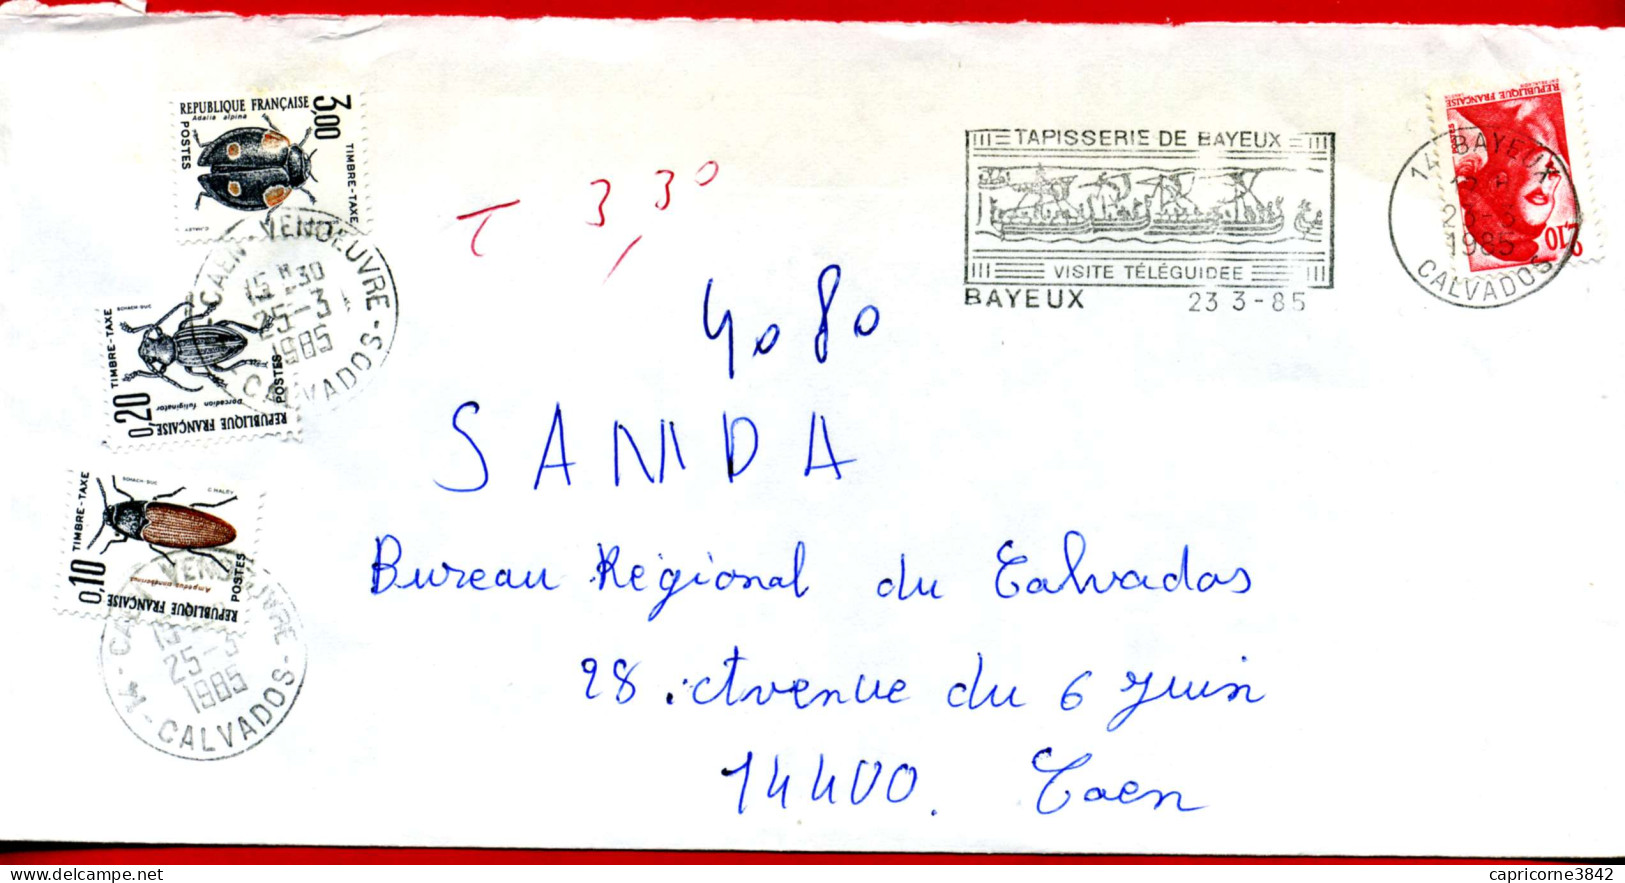 REPUBLIQUE FRANÇAISE
Adalia alpina
3,00
POSTES
TIMBRE-TAXE
CAEN-VENDEUVRE
15 H 30
25-3
1985
CALVADOS
TIMBRE-TAXE
0,20
POSTES
Dorcadion fuliginator
REPUBLIQUE FRANÇAISE
TIMBRE-TAXE
0,10
C.HALEY
POSTES
REPUBLIQUE FRANÇAISE
VENDEUVRE
25-3
1985
14-CALVADOS-
T 3,30
TAPISSERIE DE BAYEUX
VISITE TÉLÉGUIDEE
BAYEUX 23 3-85
REPUBLIQUE FRANÇAISE
POSTES
2,10
14 BAYEUX
1985
CALVADOS
4080
SANDA
Bureau Régional du Calvados
28. Avenue du 6 Juin
14400. Caen
capricorne3842